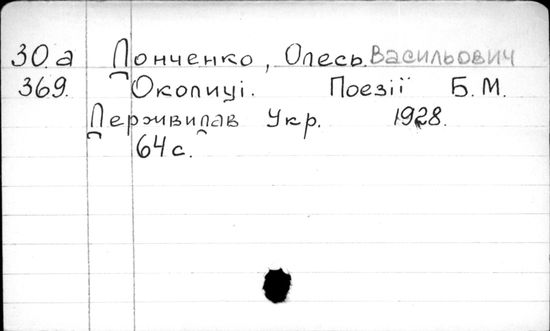 30.а Донченко, Олесь Васильович
369. Околиці. Поезії Б.М.
Держвидав Укр. 1928.
64 с.